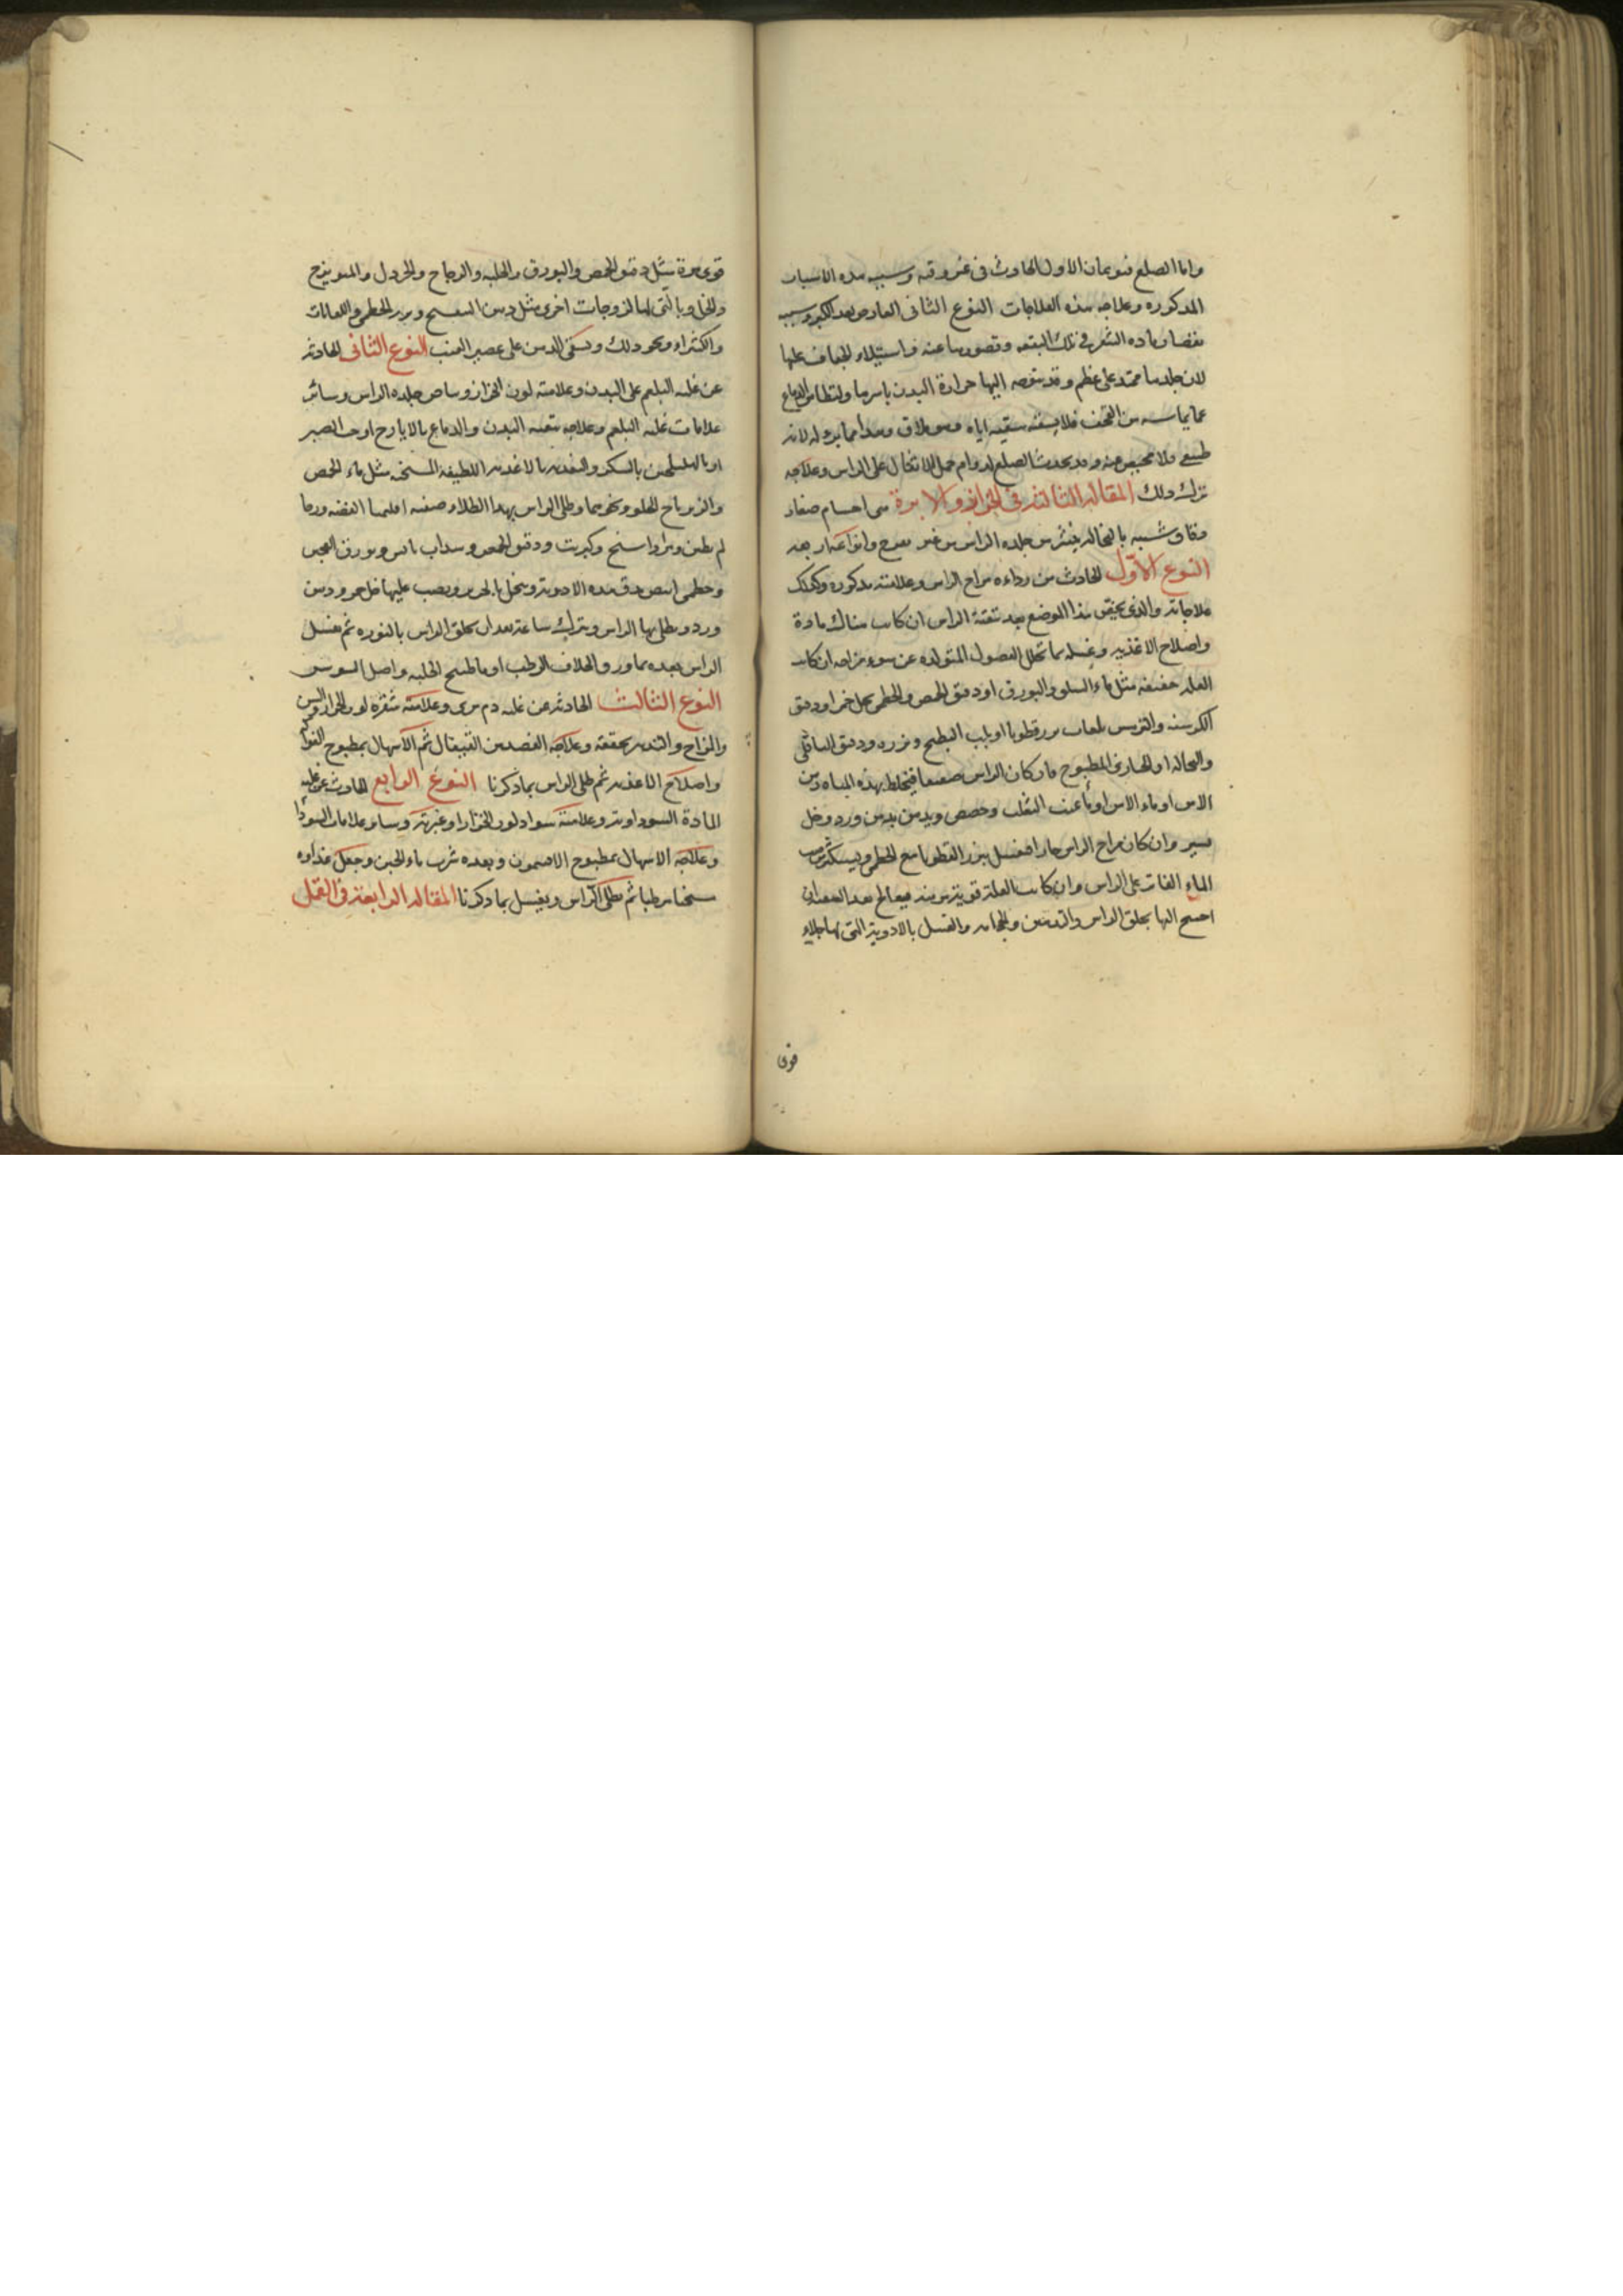 واما الصلع فنوعان الاول الحادث فى غير وقته وسببه هذه الاسباب
المذكوره وعلاجه هذه العلاجات النوع الثانى العارض بعد الكبر وسببه
نقصان ماده الشعر فى تلك البقعه وقصورها عنه واستيلاء الجفاف عليها
لان جلدها ممتد على عظم وقد تتوجه اليها حرارة البدن باسرها ولتطامن الدماغ
عما يماسه من القحف فلا يسقيه سقيه اياه وهو ملاق وهذا مما لا برء له لانه
طبيعى ولا محيص عنه وقد يحدث الصلع لدوام حمل الاثقال على الراس وعلاجه
ترك ذلك المقالة الثالثة فى الحزاز والابرية هى اجسام صغار
رقاق شبيه بالنخالة ينثر من جلده الراس من غير تقرح وانواعها اربعه
النوع الاول الحادث من رداءه مزاج الراس وعلامته مذكوره وكذلك
علاجاته والذى يختص بهذا الموضع بعد تنقية الراس ان كانت هناك مادة
واصلاح الاغذيه وغسله بما تحلل الفضول المتولده عن سوء مزاجه ان كانت
العله خفيفه مثل ماء السلق والبورق او دقيق الحمص والخطمى بخل خمر او دقيق
الكرسنه والترمس بلعاب بزر قطونا او بلب البطيخ وبزره ودقيق الباقلى
والنخاله او الخبازى المطبوخ فان كان الراس ضعيفا فيخلط بهذه المياه دهن
الاس او ماء الاس او ماء عنب الثعلب وحضض ويدهن بدهن ورد وخل
يسير وان كان مزاج الراس حارا فيغسل ببزر القطونا مع الخطمى ويستكثر صب
الماء الفاتر على الراس وان كانت العلة قوية مزمنه فيعالج بعد الفصد ان
احتيج اليها بحلق الراس والتدهين والحجامه والغسل بالادوية التى لها جلاء
قوى
قوى مرة مثل دقيق الحمص والبورق والحلبه والزجاج والخردل والميويزج
والخل وبالتى لها لزوجات اخرى مثل دهن البنفسج وبزر الخطمى واللعابات
والكثيراء ونحو ذلك ويسقى الدهن على عصير العنب النوع الثانى الحادثة
عن غلبه البلغم على البدن وعلامته لون الحزاز وبياض جلده الراس وسائر
علامات غلبه البلغم وعلاجه تنقيه البدن والدماغ بالايارج او حب الصبر
او بالهليلجين بالسكر والتغذيه بالاغذيه اللطيفه المسخنه مثل ماء الحمص
والزيرباج الحلو ونحوهما وطلى الراس بهذا الطلاء صفته اقليميا الفضه وربما
لم يكن ومرداسنج وكبريت ودقيق الحمص وسذاب يابس وبورق العجين
وخطمى ابيض يدق هذه الادوية وينخل بالحرير ويصب عليها خل خمر ودهن
ورد ويطلى بها الراس ويترك ساعة بعد ان يحلق الراس بالنوره ثم يغسل
الراس بعده بماء ورق الخلاف الرطب او ماء طبيخ الحلبه واصل السوس
النوع الثالث الحادثه عن غلبه دم مرى وعلامته شقره لون الحزاز والسن
والمزاج والتدبير تحققه وعلاجه الفصد من القيفال ثم الاسهال بمطبوخ الفواكه
واصلاح الاغذيه ثم طلى الراس بما ذكرنا النوع الرابع الحادث عن غلبه
المادة السوداوية وعلامته سواد لون الحزاز او غبرته وسائر علامات السودا
وعلاجه الاسهال بمطبوخ الافتيمون وبعده شرب ماء الجبن وجعل غذاوه
مسخنا مرطبا ثم يطلى الراس ويغسل بما ذكرنا المقالة الرابعة فى القمل